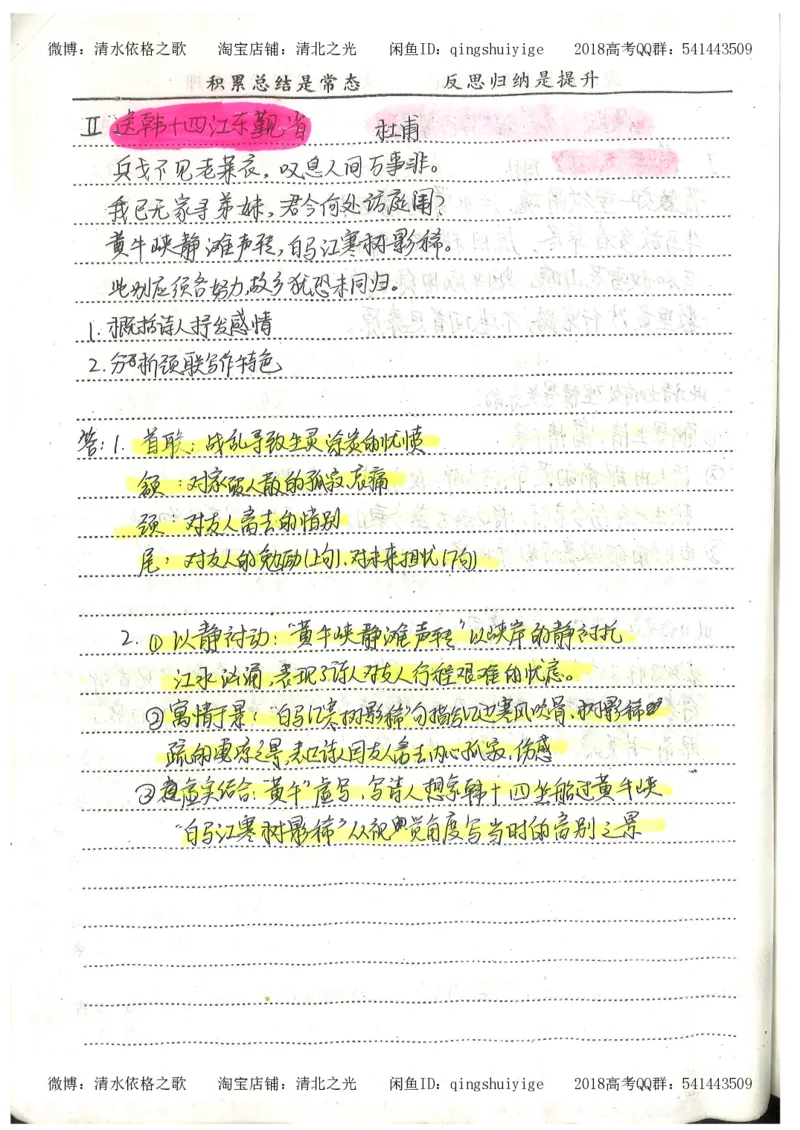 微博：清水依格之歌 淘宝店铺：清北之光 闲鱼ID：qingshuiyige 2018高考QQ群：541443509
积累总结是常态 反思归纳是提升
Ⅱ 送韩十四江东觐省 杜甫
兵戈不见老莱衣，叹息人间万事非。
我已无家寻弟妹，君今何处访庭闱？
黄牛峡静滩声转，白马江寒树影稀。
此别应须各努力，故乡犹恐未同归。
1. 概括诗人抒发感情
2. 分析颈联写作特色
答：1. 首联：战乱导致生灵涂炭的忧愤
颔：对家破人散的孤寂哀痛
颈：对友人离去的惜别
尾：对友人的勉励(上句)，对未来担忧(下句)
2. ①以静衬动："黄牛峡静滩声转"以峡岸的静衬托
江水汹涌，表现了诗人对友人行程艰难的忧虑。
②寓情于景："白马江寒树影稀"句描绘江边寒风吹骨、树影稀
疏的凄凉之景，表现诗人因友人离去内心孤寂、伤感
③虚实结合："黄牛"虚写，写诗人想象韩十四坐船过黄牛峡
"白马江寒树影稀"从视觉角度写当时的离别之景
微博：清水依格之歌 淘宝店铺：清北之光 闲鱼ID：qingshuiyige 2018高考QQ群：541443509